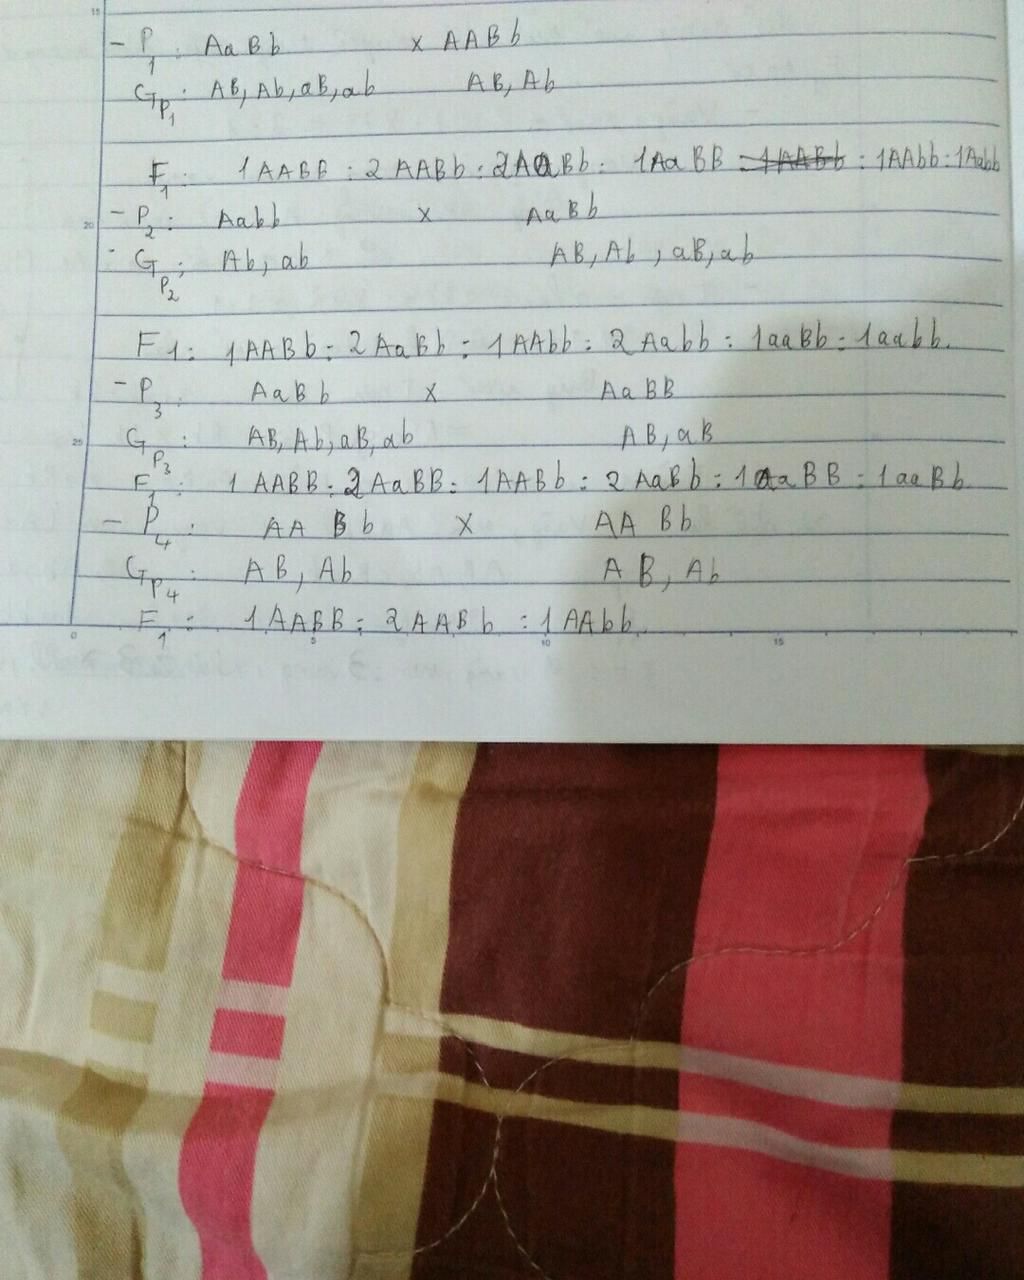 15
- P1: AaBb x AABb
GP1: AB, Ab, aB, ab AB, Ab
F1: 1AABB : 2AABb : 2AaBb : 1AaBB : 1AABb : 1AAbb : 1Aabb
- P2: Aabb x AaBb
20
- GP2: Ab, ab AB, Ab, aB, ab
F1: 1AABb : 2AaBb : 1AAbb : 2Aabb : 1aaBb : 1aabb.
- P3: AaBb x AaBB
25
GP3: AB, Ab, aB, ab AB, aB
F1: 1AABB : 2AaBB : 1AABb : 2AaBb : 1aaBB : 1aaBb.
- P4: AABb x AABb
GP4: AB, Ab AB, Ab
F1: 1AABB : 2AABb : 1AAbb.
0 5 10 15